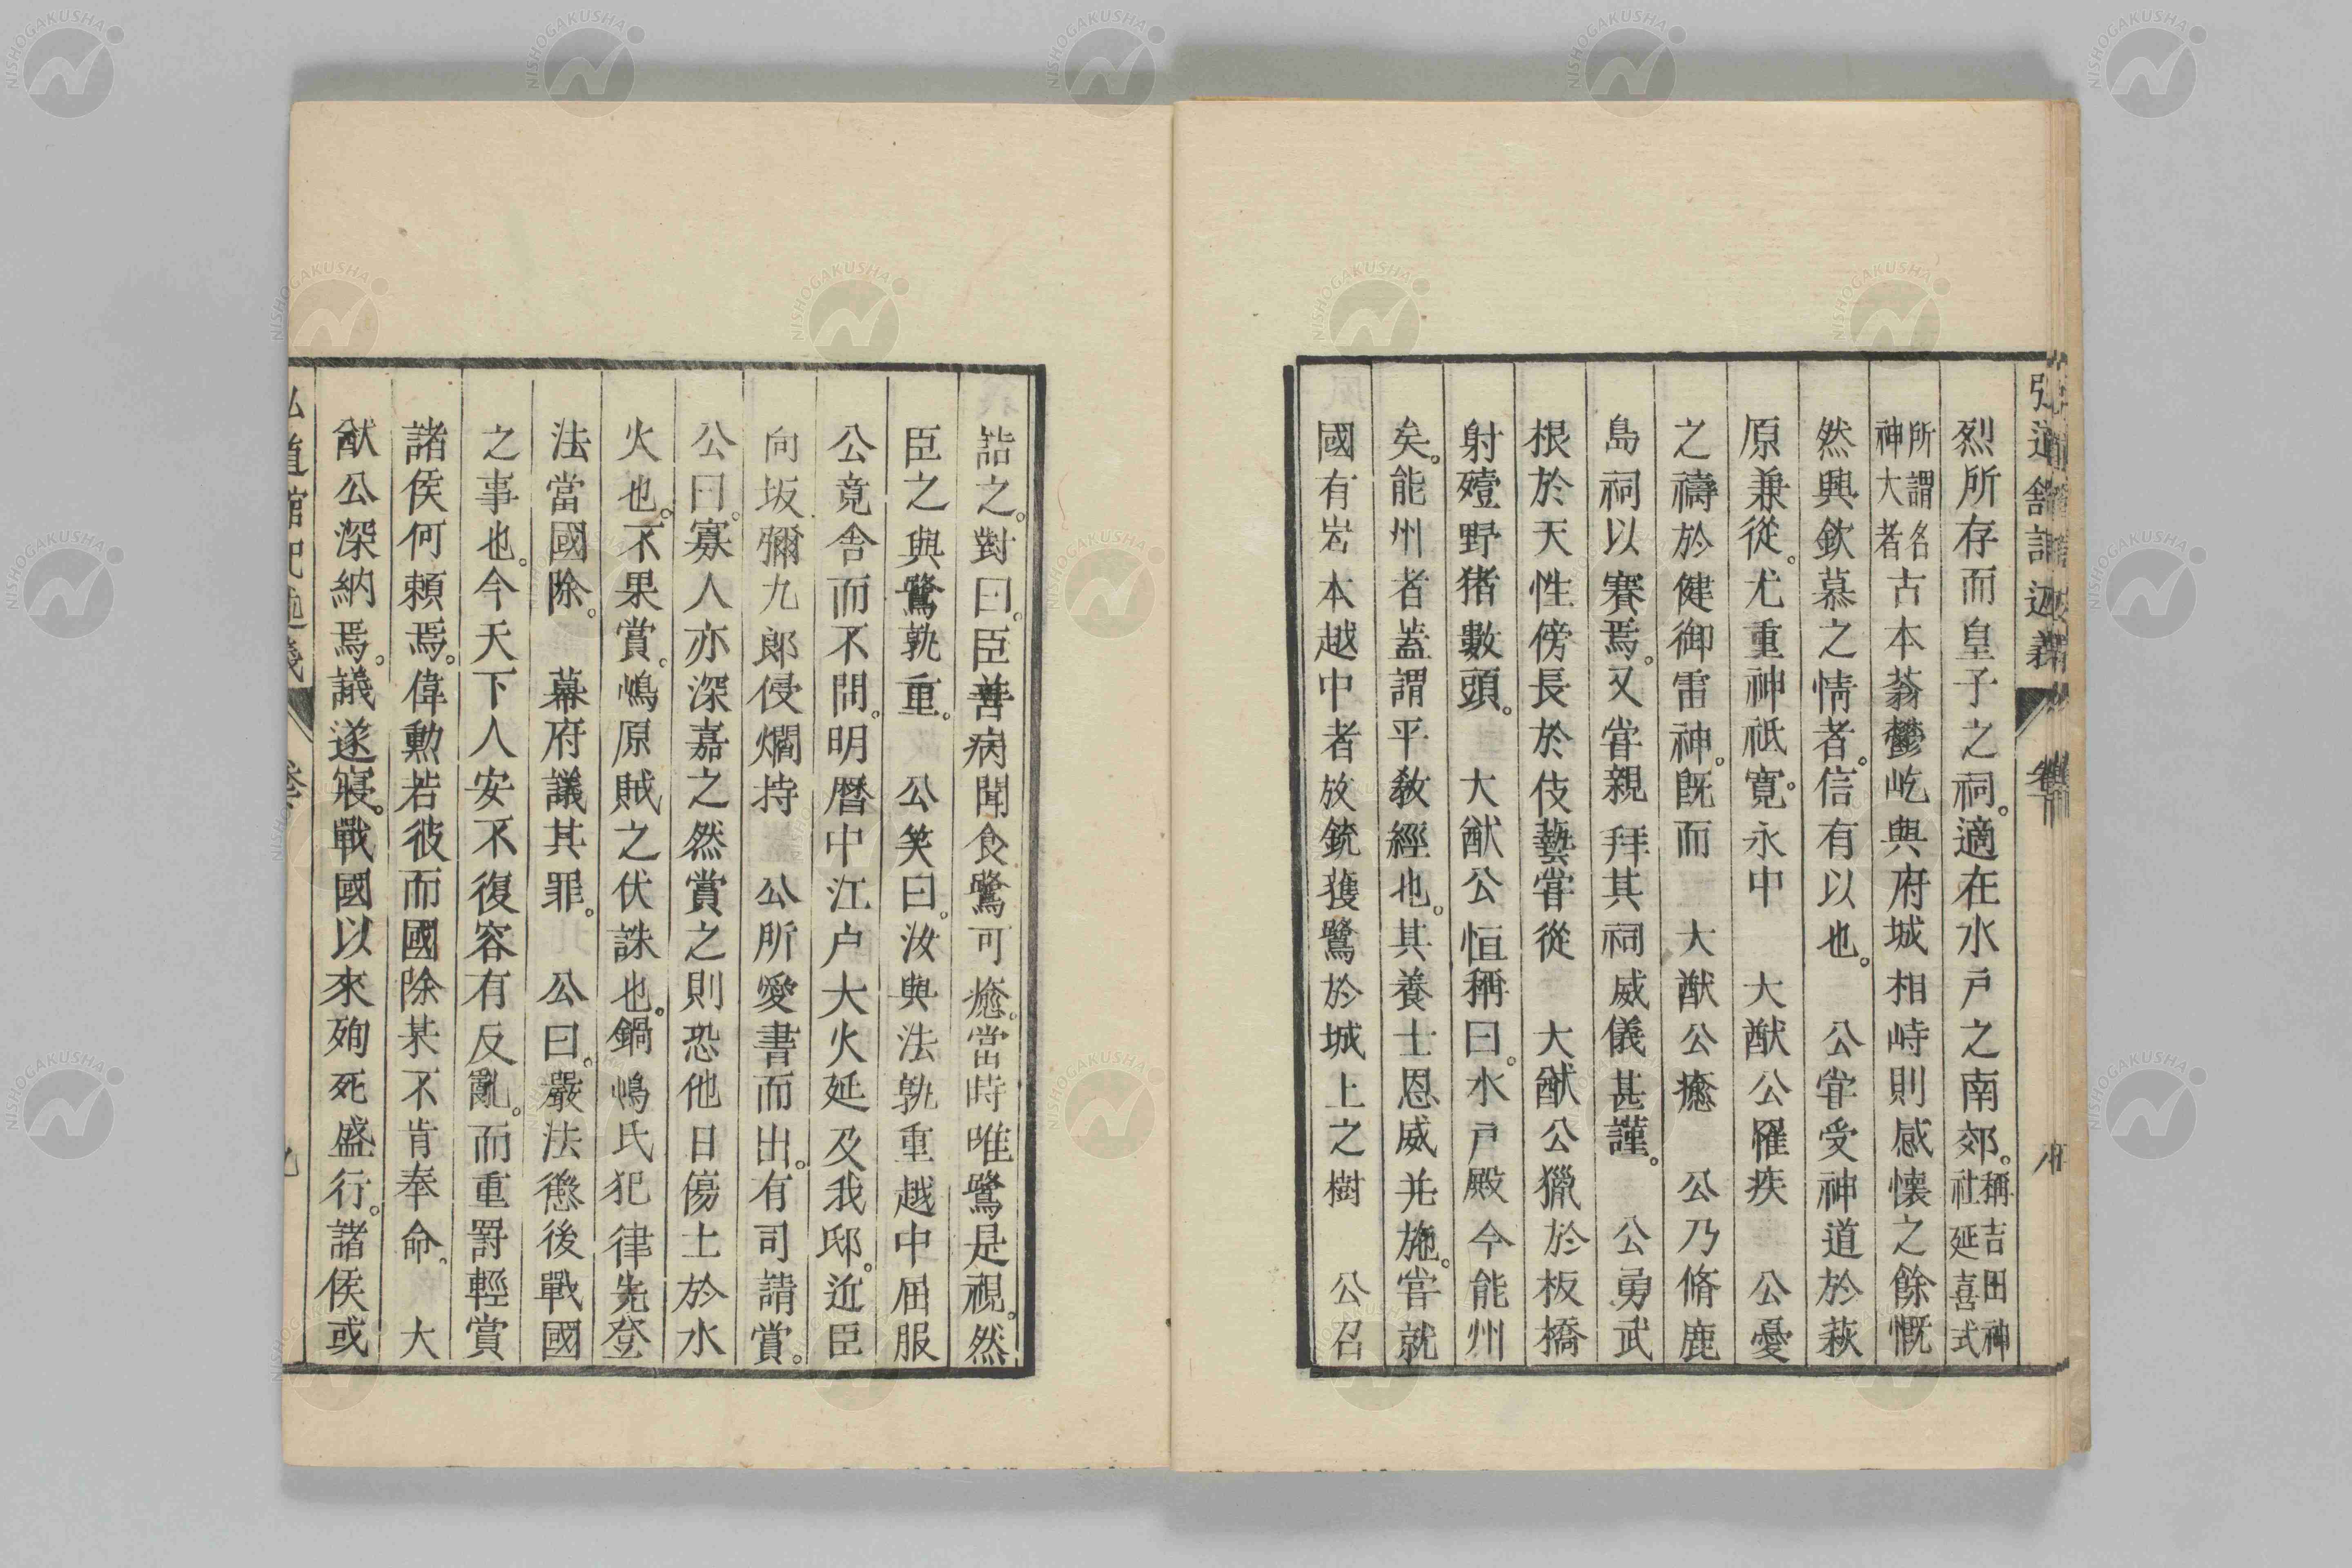 弘道館記述義
烈所存而皇子之祠。適在水戶之南郊。稱吉田神社延喜式
所謂名神大者古木蓊鬱屹與府城相峙則感懷之餘慨
然興欽慕之情者。信有以也。 公甞受神道於萩
原兼從。尤重神祇。寛永中 大猷公罹疾 公憂
之禱於健御雷神。既而 大猷公癒 公乃脩鹿
島祠以賽焉。又甞親拜其祠威儀甚謹。 公勇武
根於天性傍長於伎藝甞從 大猷公獵於板橋
射殪野猪數頭。 大猷公恒稱曰。水戸殿今能州
矣。能州者蓋謂平敎經也。其養士恩威并施。甞就
國有岩本越中者放銃獲鷺於城上之樹 公召
詰之。對曰。臣善病聞食鷺可癒。當時唯鷺是視。然
臣之與鷺孰重。 公笑曰。汝與法孰重越中屈服
公竟舎而不問。明曆中江户大火延及我邸。近臣
向坂彌九郎侵爛持 公所愛書而出。有司請賞。
公曰。寡人亦深嘉之然賞之則恐他日傷士於水
火也。不果賞。嶋原賊之伏誅也。鍋嶋氏犯律先登
法當國除。 幕府議其罪。 公曰。嚴法懲後戰國
之事也。今天下人安不復容有反亂。而重罸輕賞
諸侯何賴焉。偉勳若彼而國除某不肯奉命。 大
猷公深納焉。議遂寢。戰國以來殉死盛行。諸侯或
弘道館記述義